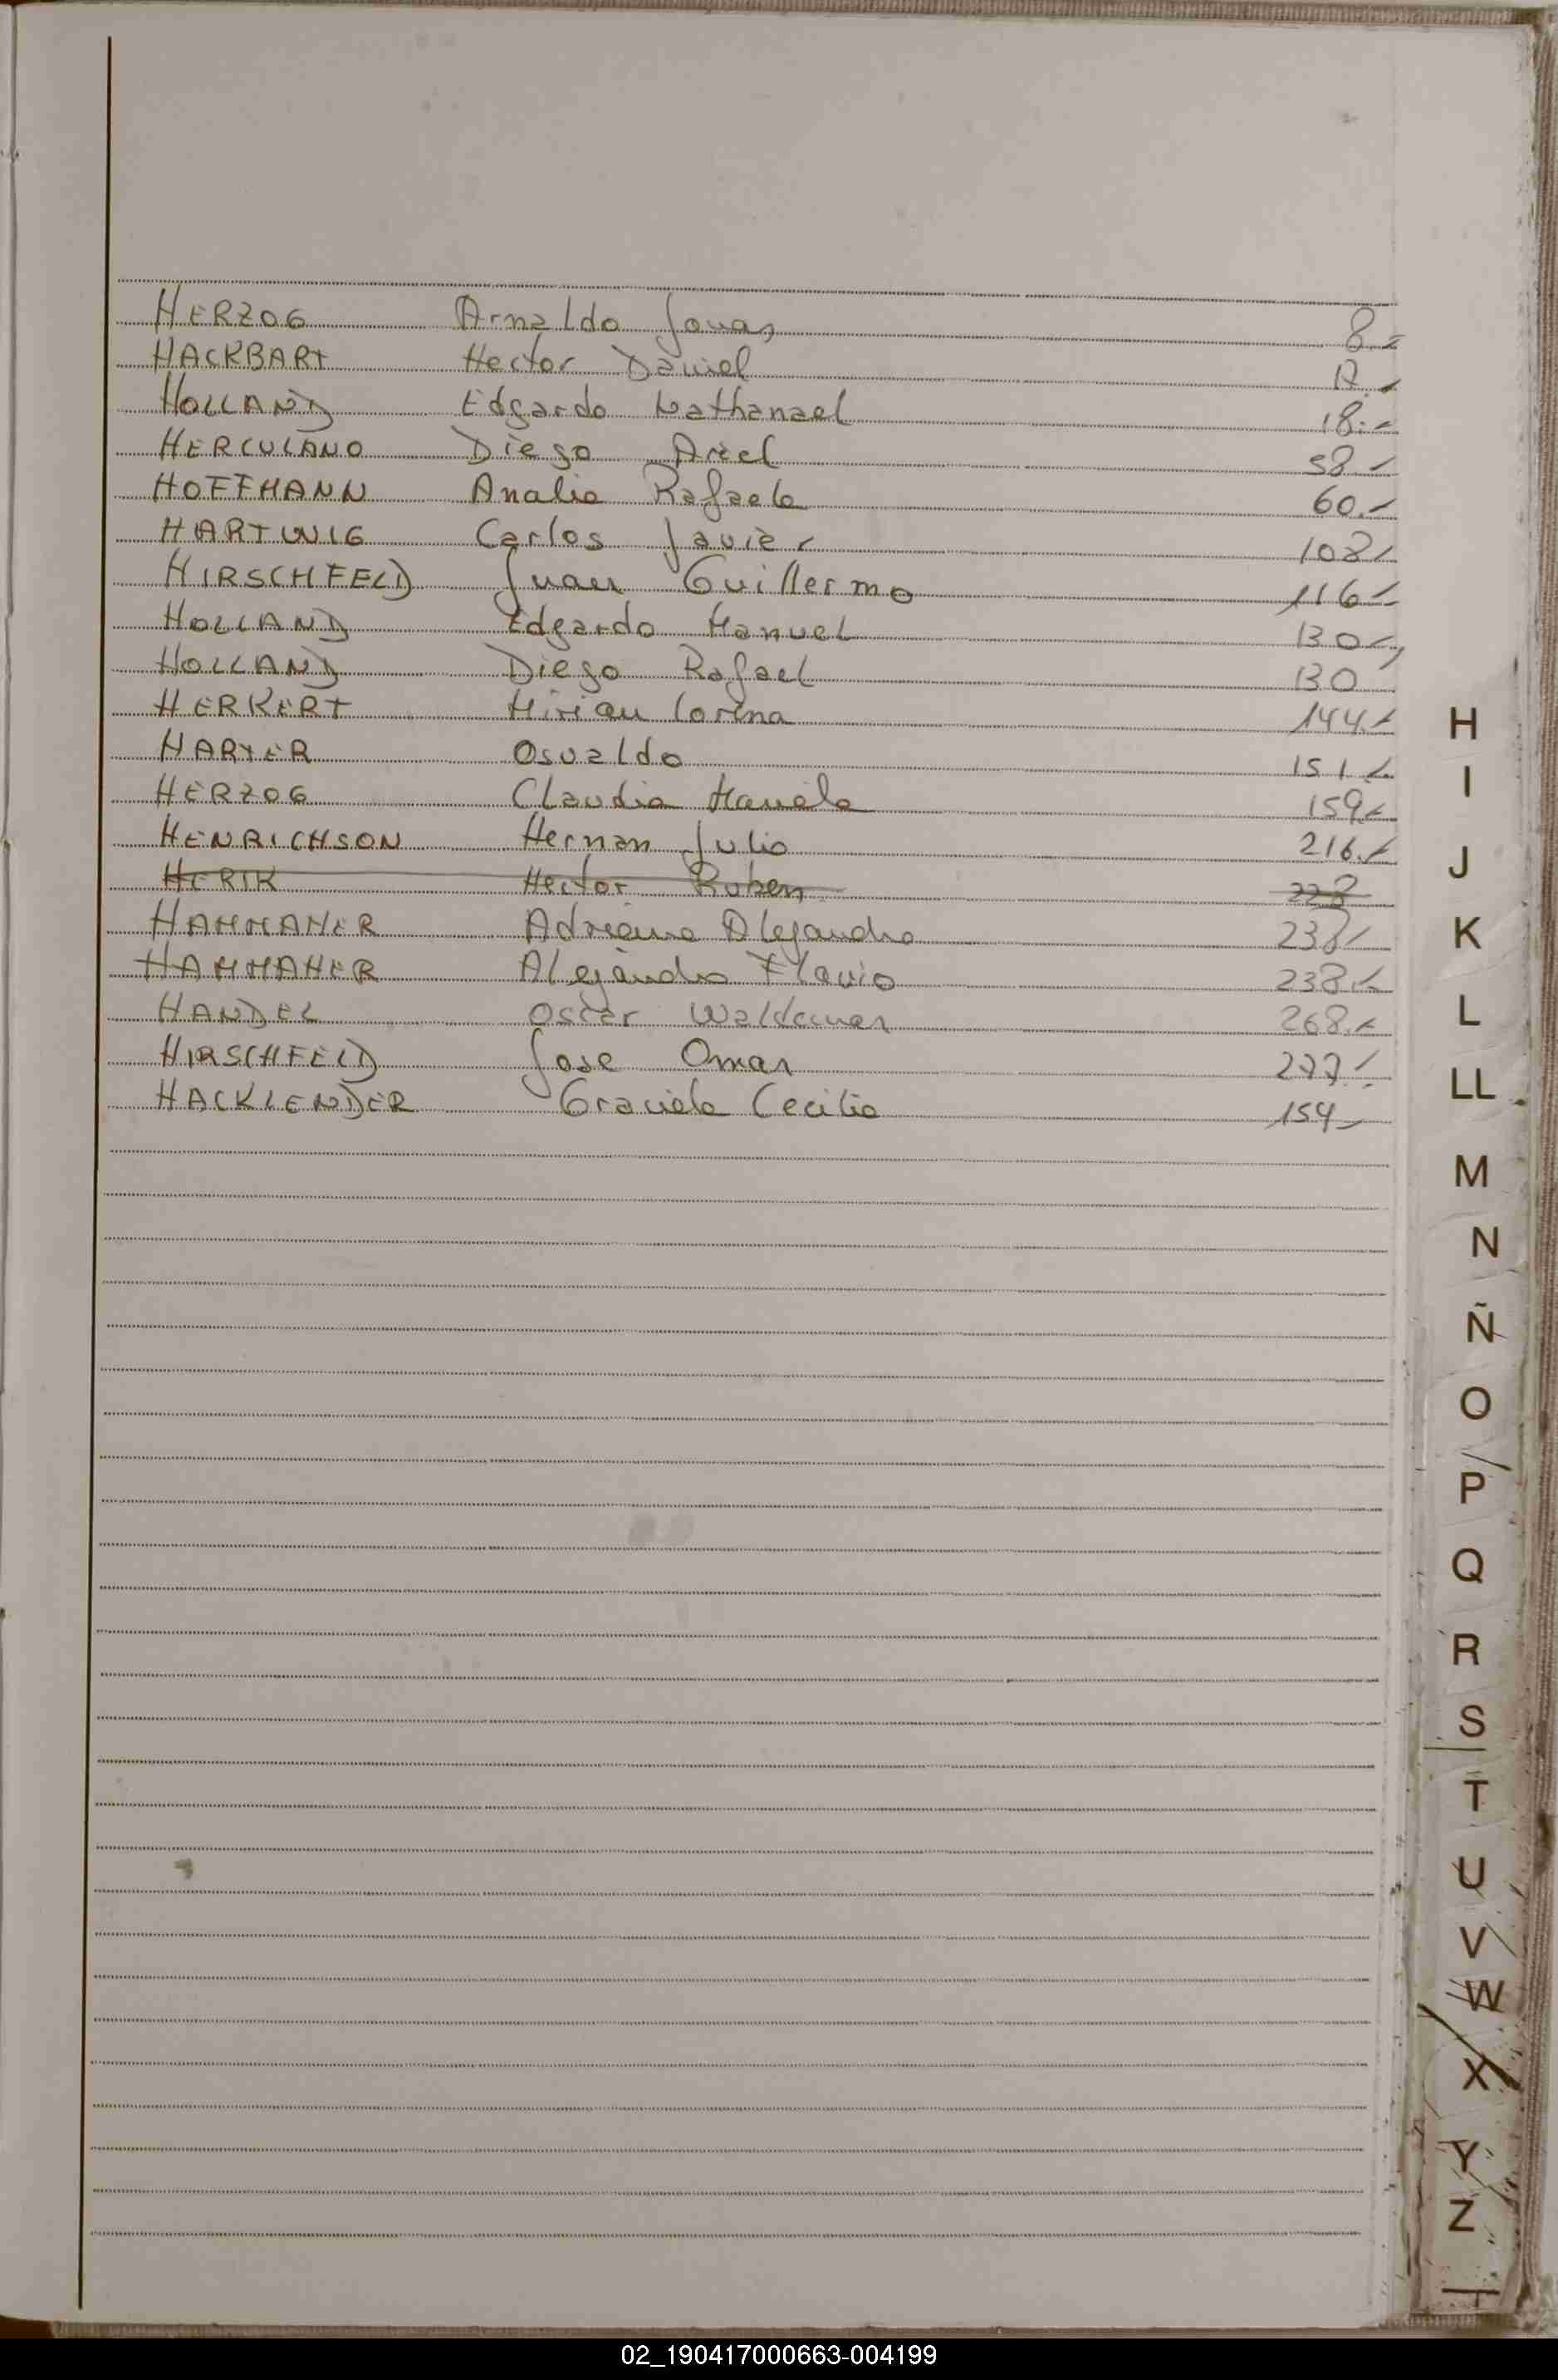 HERZOG Arnaldo Jonas 8.-
HACKBART Hector Daniel 12.-
HOLLAND Edgardo Nathanael 18.-
HERCULANO Diego Ariel 58.-
HOFFMANN Analia Rafaela 60.-
HARTWIG Carlos Javier 108.-
HIRSCHFELD Juan Guillermo 116.-
HOLLAND Edgardo Manuel 130.-
HOLLAND Diego Rafael 130
HERKERT Mirian Lorena 144.-
HARTER Osvaldo 151.-
HERZOG Claudia Mariela 159.-
HENRICHSON Hernan Julio 216.-
HERIK Hector Ruben 228
HAMMANER Adriana Alejandra 238.-
HAMMANER Alejandro Flavio 238.-
HANDEL Oscar Waldemar 268.-
HIRSCHFELD Jose Omar 277.-
HACKLENDER Graciela Cecilia 154.-
H
I
J
K
L
LL
M
N
Ñ
O
P
Q
R
S
T
U
V
W
X
Y
Z
02_190417000663-004199